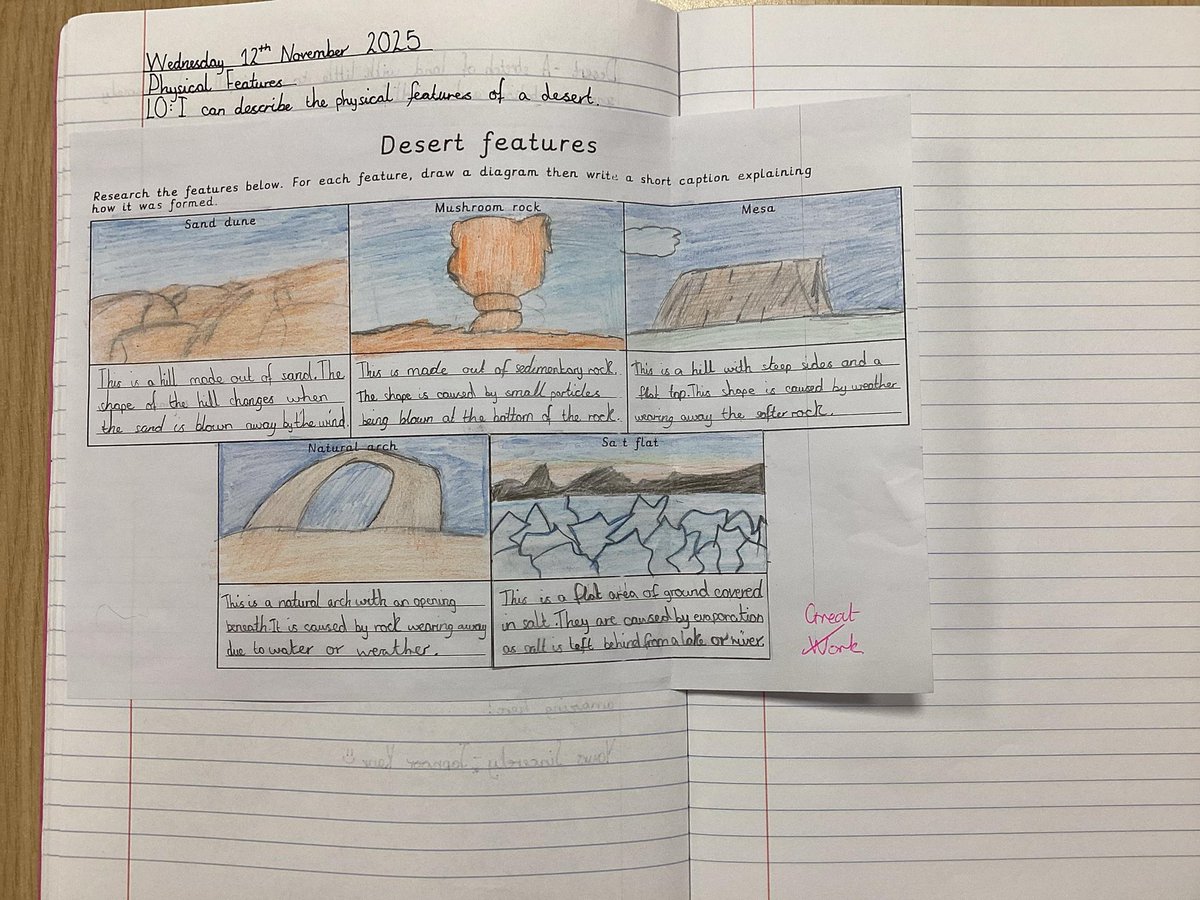 Wednesday 12th November 2025
Physical Features
LO: I can describe the physical features of a desert.
Desert features
Research the features below. For each feature, draw a diagram then write a short caption explaining
how it was formed.
Sand dune
This is a hill made out of sand. The
shape of the hill changes when
the sand is blown away by the wind.
Mushroom rock
This is made out of sedimentary rock.
The shape is caused by small particles
being blown at the bottom of the rock.
Mesa
This is a hill with steep sides and a
flat top. This shape is caused by weather
wearing away the softer rock.
Natural arch
This is a natural arch with an opening
beneath. It is caused by rock wearing away
due to water or weather.
Sa t flat
This is a flat area of ground covered
in salt. They are caused by evaporation
as salt is left behind from a lake or river.
Great
Work